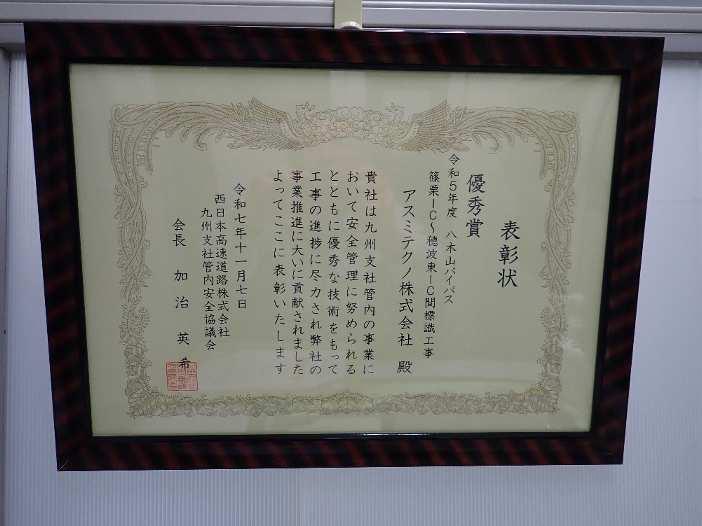 表彰状
優秀賞
令和5年度 八木山バイパス
篠栗IC～穂波東IC間標識工事
アスミテクノ株式会社 殿
貴社は九州支社管内の事業に
おいて安全管理に努められる
とともに優秀な技術をもって
工事の進捗に尽力され弊社の
事業推進に大いに貢献されました
よってここに表彰いたします
令和七年十一月七日
西日本高速道路株式会社
九州支社管内安全協議会
会長 加治 英希